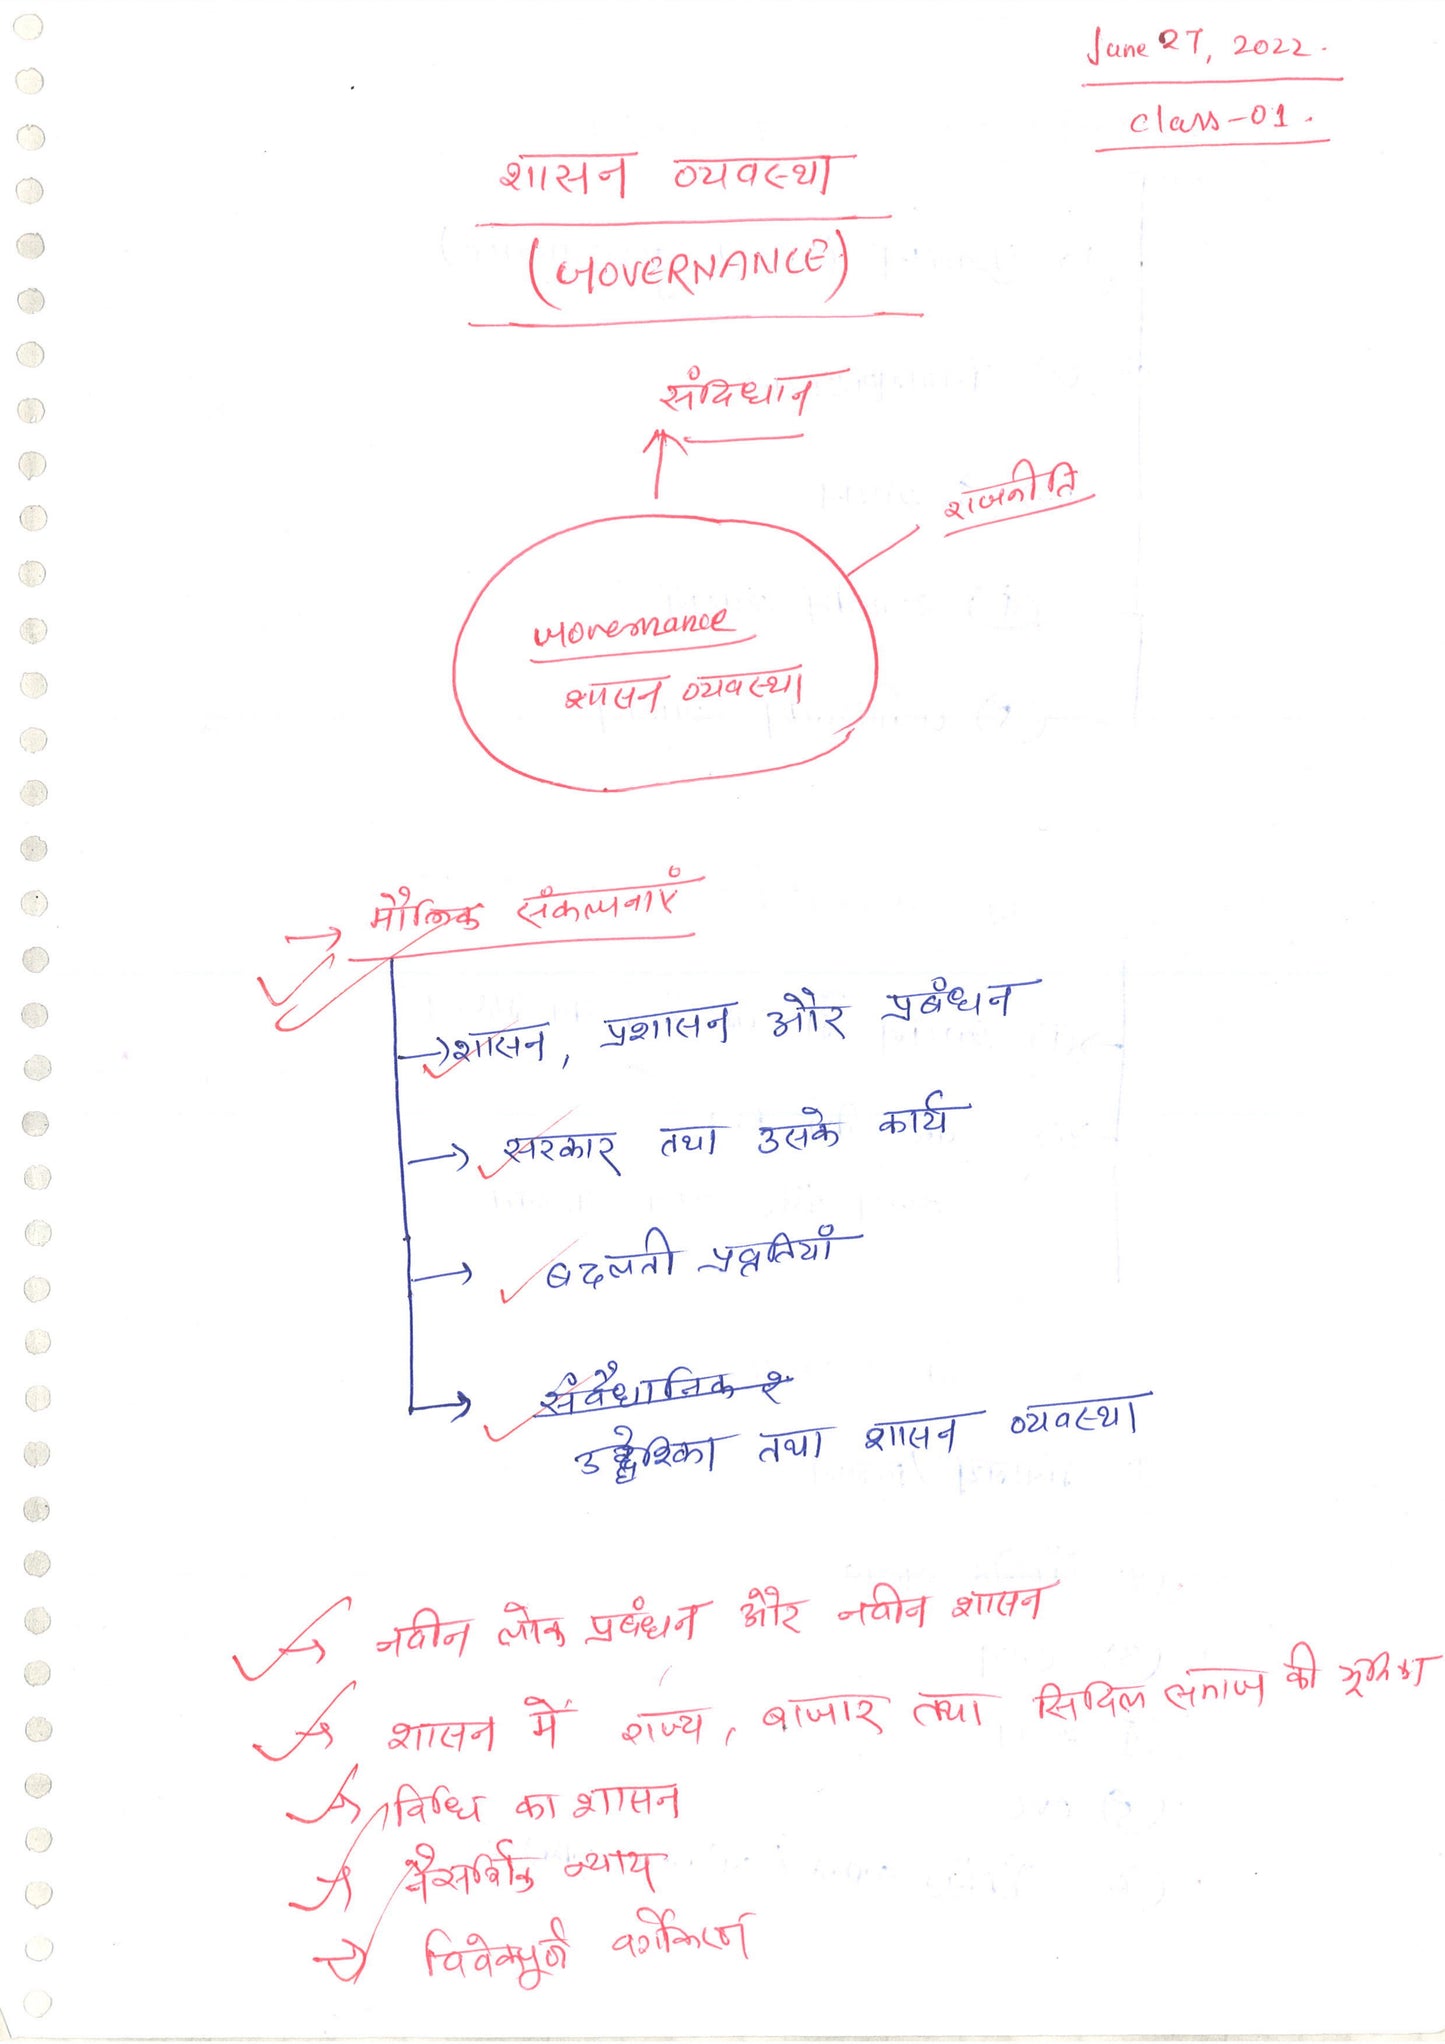 June 27, 2022.
class-01.
शासन व्यवस्था
(GOVERNANCE)
संविधान
राजनीति
Governance
शासन व्यवस्था
→ मौलिक संकल्पनाएं
→ शासन, प्रशासन और प्रबंधन
→ सरकार तथा उसके कार्य
→ बदलती प्रवृतियाँ
→ संवैधानिक
उद्देशिका तथा शासन व्यवस्था
→ नवीन लोक प्रबंधन और नवीन शासन
→ शासन में राज्य, बाजार तथा सिविल समाज की भूमिका
→ विधि का शासन
→ नैसर्गिक न्याय
→ विवेकपूर्ण वर्गीकरण